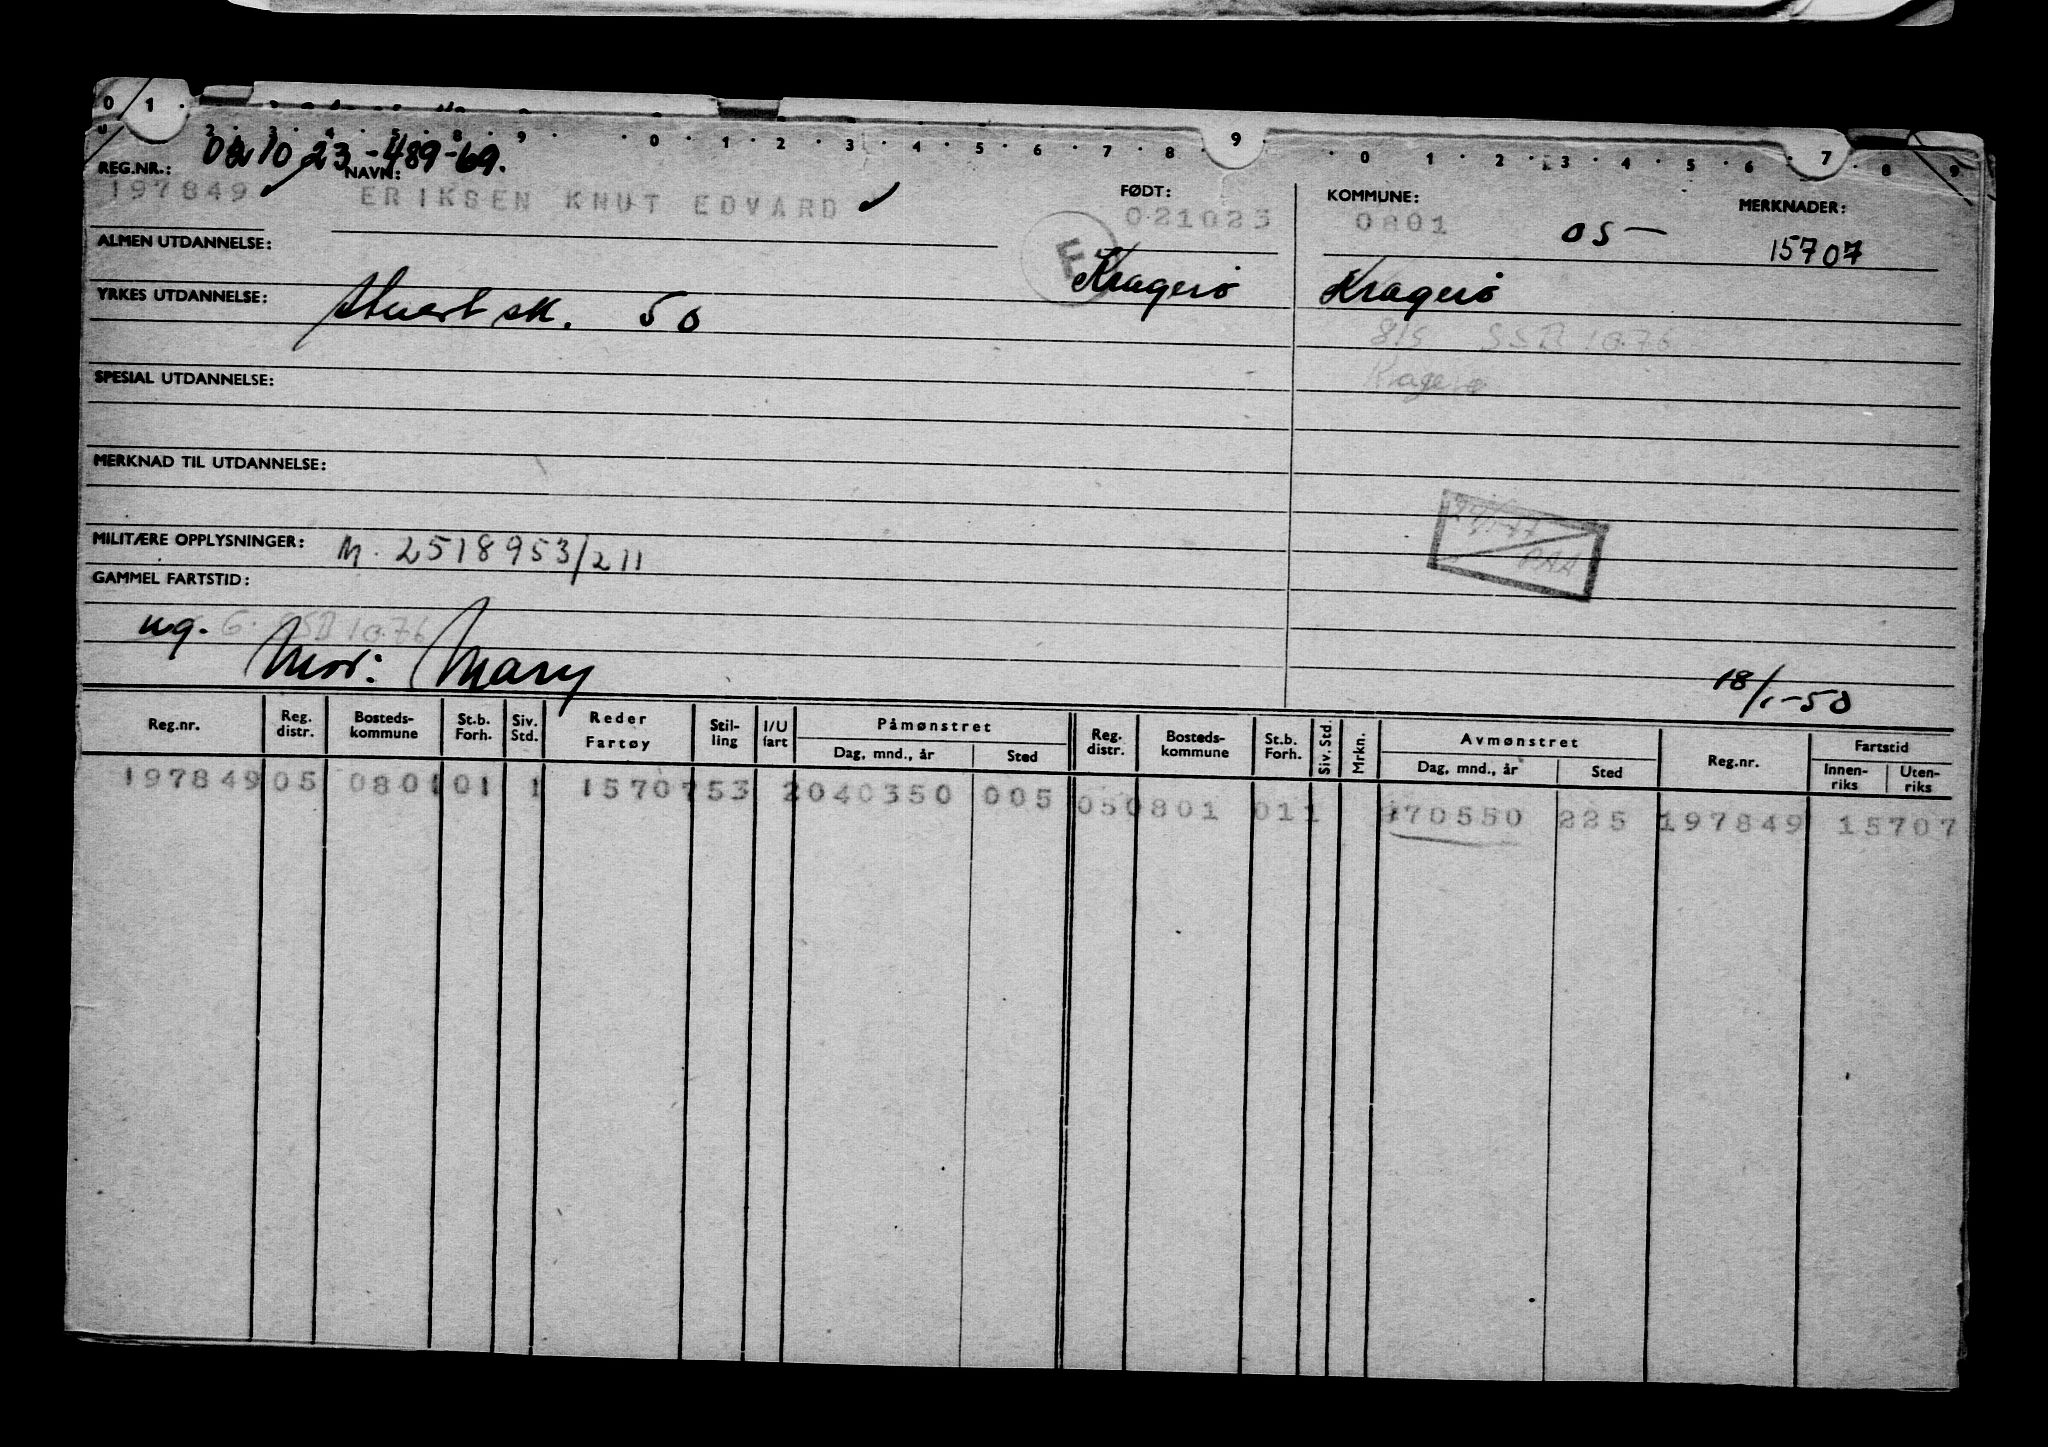 0 1 2 3 4 5 8 9 0 1 2 3 4 5 6 7 8 9 0 1 2 3 4 5 6 7 8 9
REG.NR.: 021023-489-69. NAVN: FØDT: KOMMUNE: MERKNADER:
197849 ERIKSEN KNUT EDVARD 021023 0801 05- 15707
ALMEN UTDANNELSE: F Kragerø Kragerø
YRKES UTDANNELSE: Stuert sk. 50
SSB 10.76
Kragerø
SPESIAL UTDANNELSE:
MERKNAD TIL UTDANNELSE:
MILITÆRE OPPLYSNINGER: M. 2518953/211
GAMMEL FARTSTID:
ug. G. SSB 10.76
Mor: Mary
18/1-50
Reg.nr. Reg. distr. Bosteds-kommune St.b. Forh. Siv. Std. Reder Fartøy Stil-ling I/U fart Påmønstret Dag, mnd., år Sted Reg. distr. Bosteds-kommune St.b. Forh. Siv. Std. Mrkn. Avmønstret Dag, mnd., år Sted Reg.nr. Fartstid Innen-riks Uten-riks
197849 05 0801 01 1 15707 53 2 040350 005 05 0801 01 1 170550 225 197849 15707